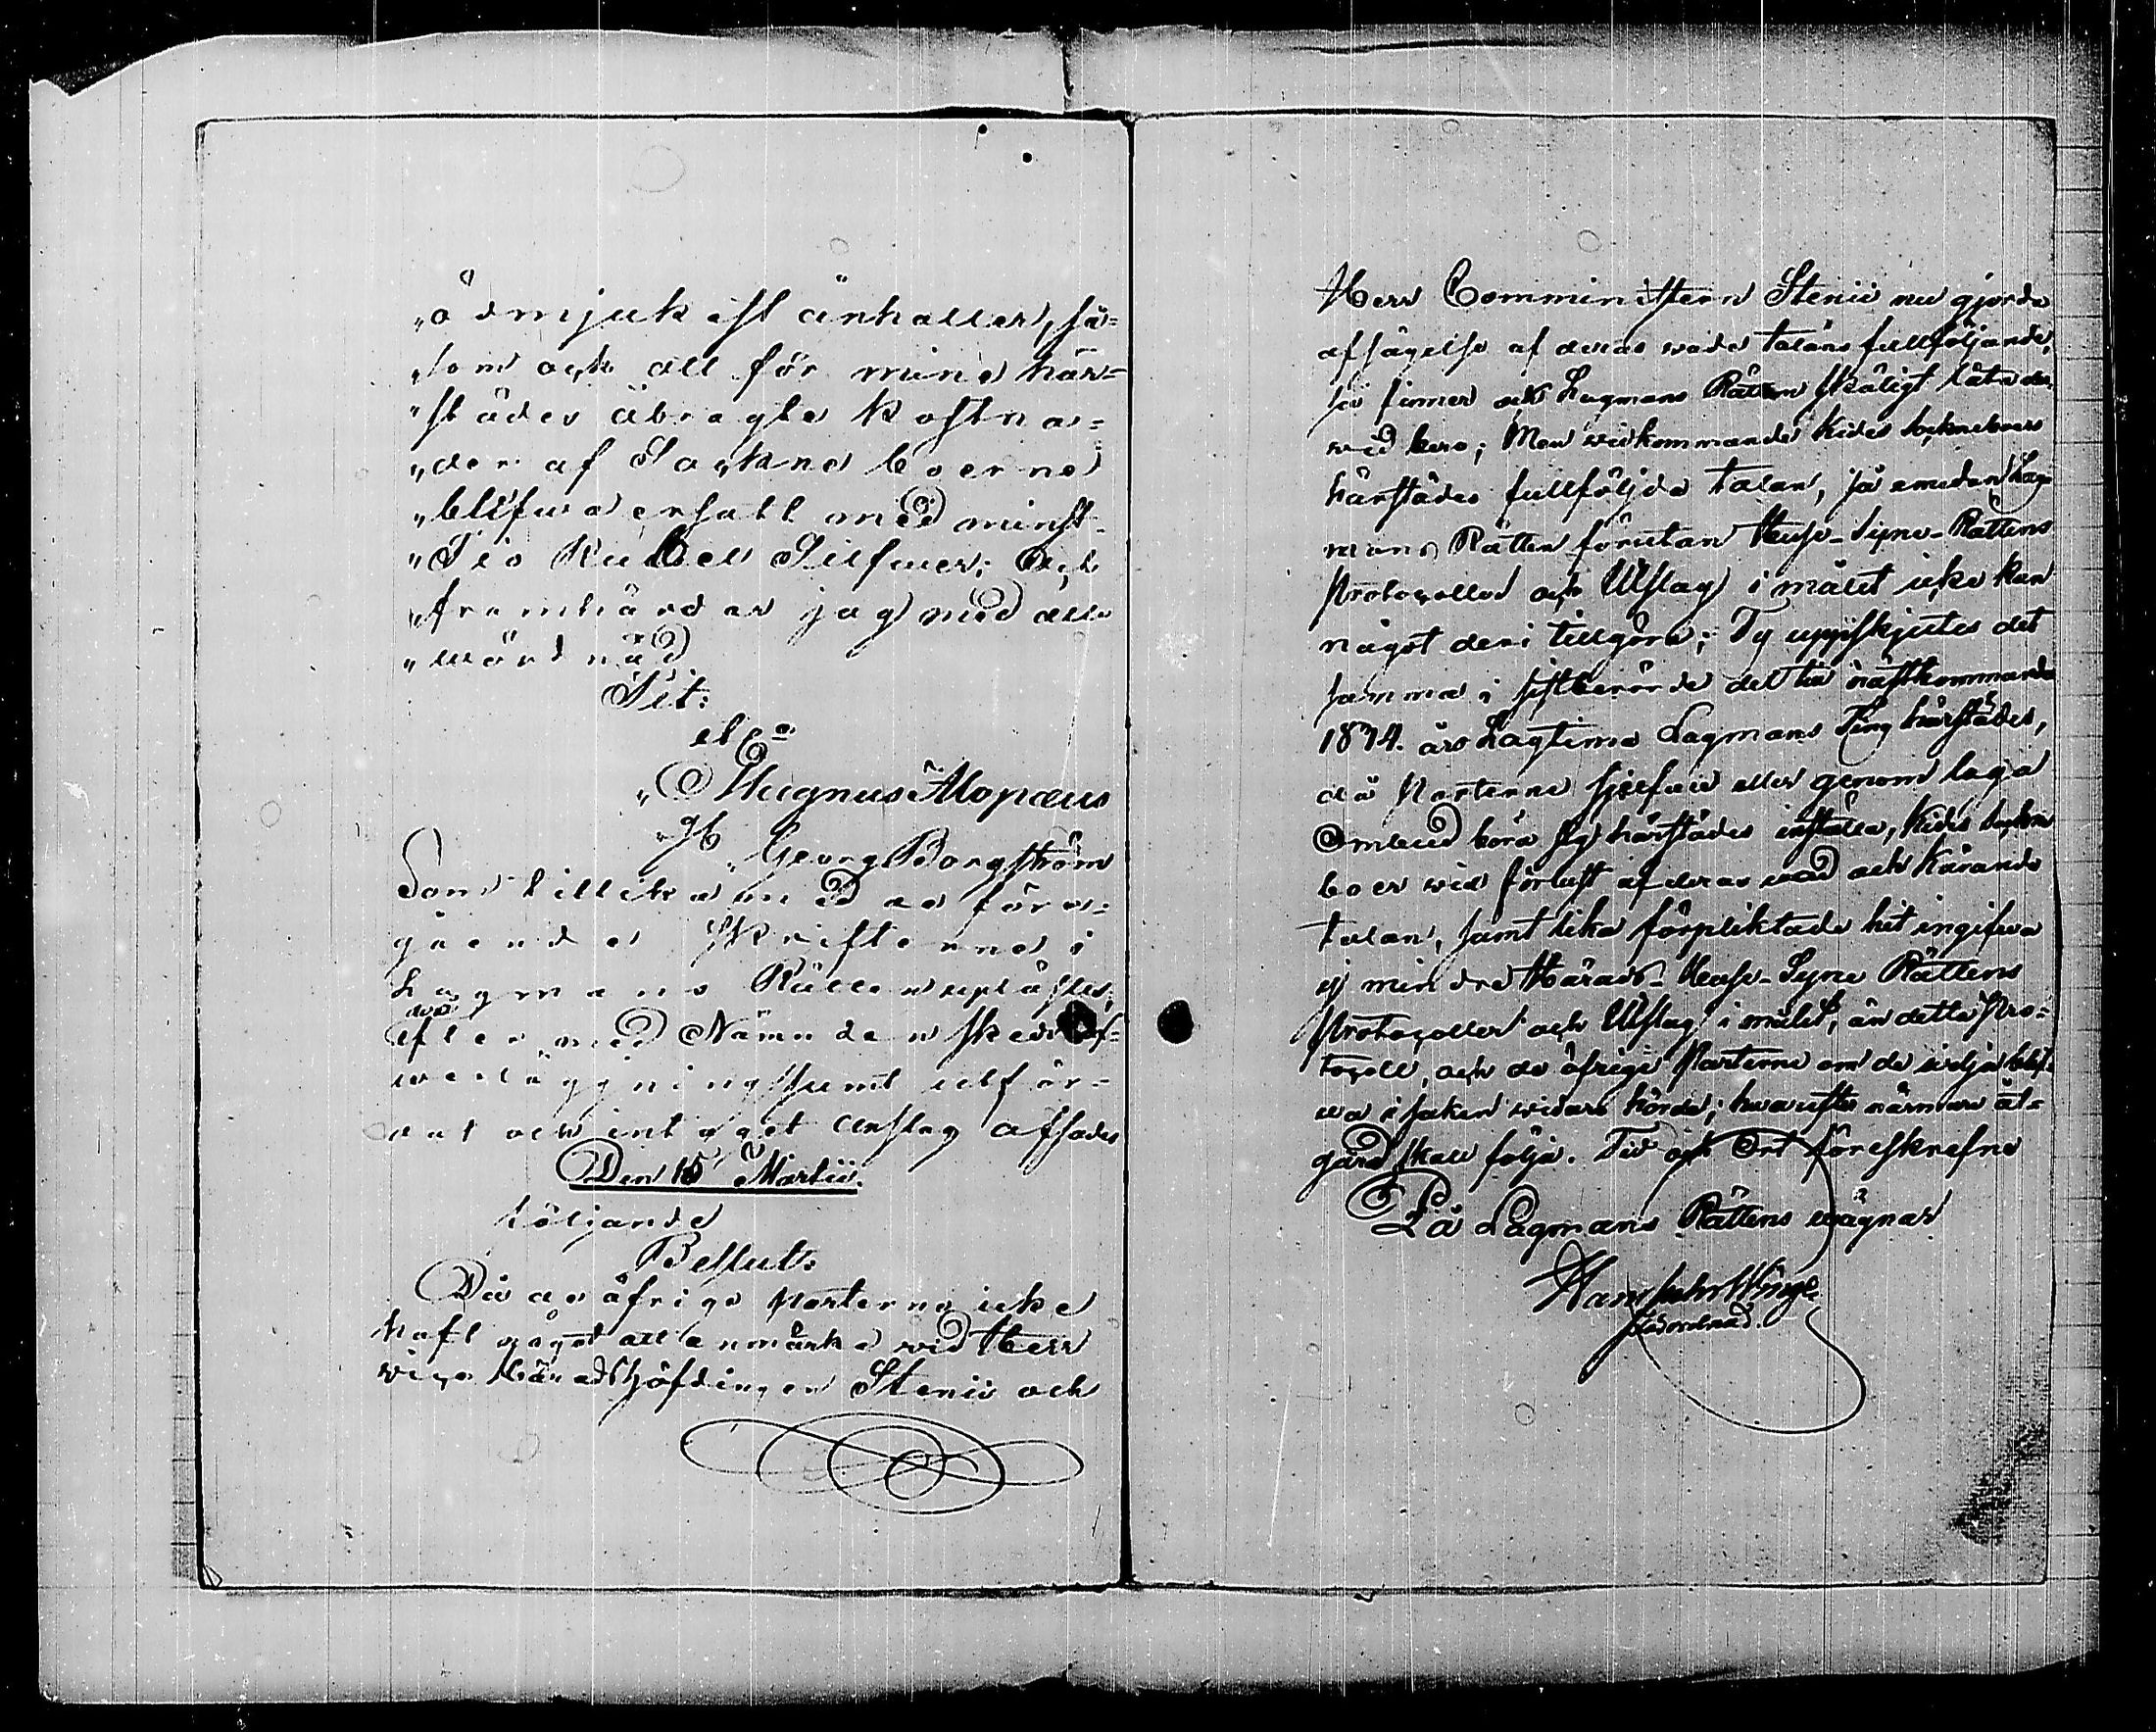 "ödmjukast anhaller, så-
"som ock att för mina här-
"städes åbragta kostna-
"der af Sockne boerne
"blifwa ersatt med minst
"Tio Rubel Silfwer; Och
"framhärdar jag med all
"wördnad
Tit:
"Magnus Alopæus
"Georg Borgström
Som tillika med de föro-
gående Skrifterna i
Lagmans Rätten uplästes,
efter med Nämnden skedd öf-
werläggning samt utfär-
dat och intaget anslag afsades
Den 15 Martii.
följande
Beslut:
Då de öfrige Parterne icke
haft något att anmärka wid Herr
Vice Häradshöfdingen Stenii och
Herr Comministern Stenii nu gjorde
afsägelse af deras wade talans fullföljande,
så finner ock Lagmans Rätten skäligt låta der
wid bero; Men widkommande Kides Sockneboers
härstädes fullföljda talan, så emedan Lag-
mans Rätten förutan Husesyns-Rättens
Protocoller och Utslag i målet icke kan
något deri tillgöra; Ty uppskjutes det
samma i sistberörde del till nästkommande
1814. års Lagtima Lagmans Ting härstädes,
då Parterne sjelfwe eller genom laga
Ombud böra sig härstädes inställa, Kides Sockne
boer wid förlust af deras wad och Kärande
talan, samt lika förpliktade hit ingifwa
ej mindre Härads-Huse-Syne Rättens
Protocoller och Utslag i målet, än detta Pro-
tocoll, och de öfrige Parterne om de wilja blif-
wa i saken widare hörde; hwarefter närmare åt-
gärd skall följa. Tid och Ort förеskrefne
På Lagmans Rättens wägnar